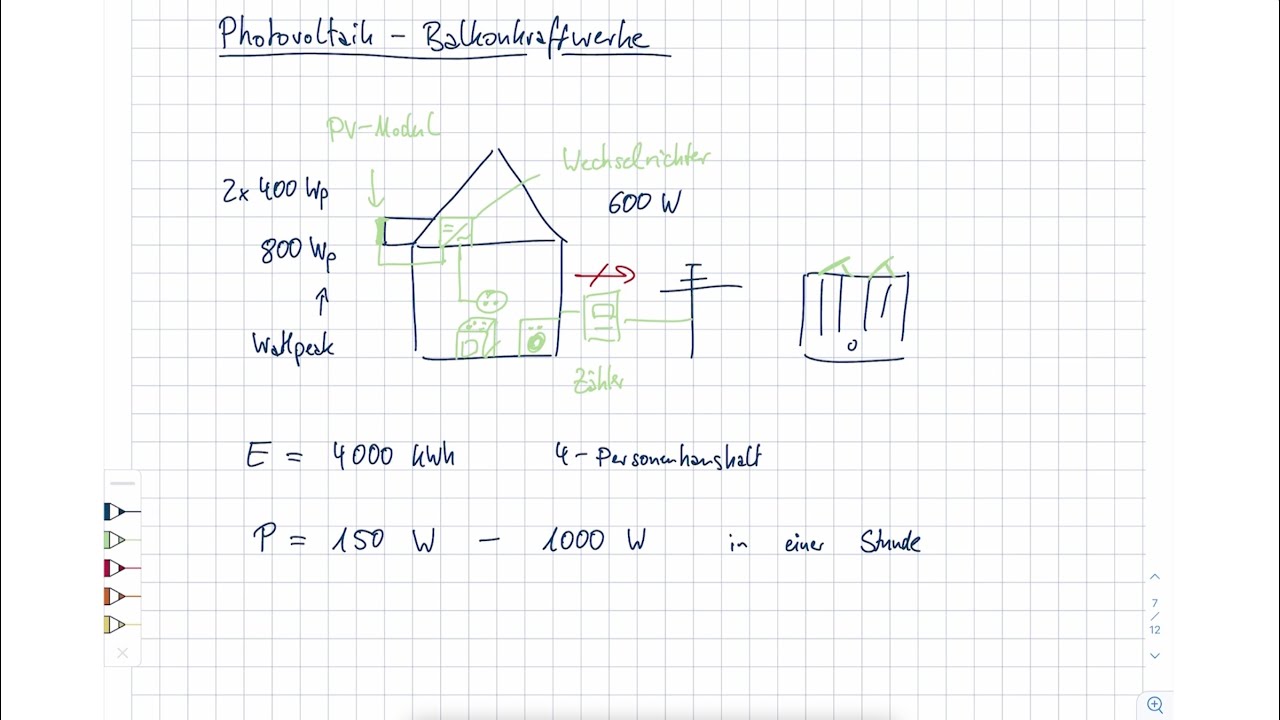 Photovoltaik - Balkonkraftwerke
PV-Modul
Wechselrichter
2x 400 Wp
600 W
800 Wp
Wattpeak
Zähler
E = 4000 kWh 4-Personenhaushalt
P = 150 W - 1000 W in einer Stunde
7
/
12